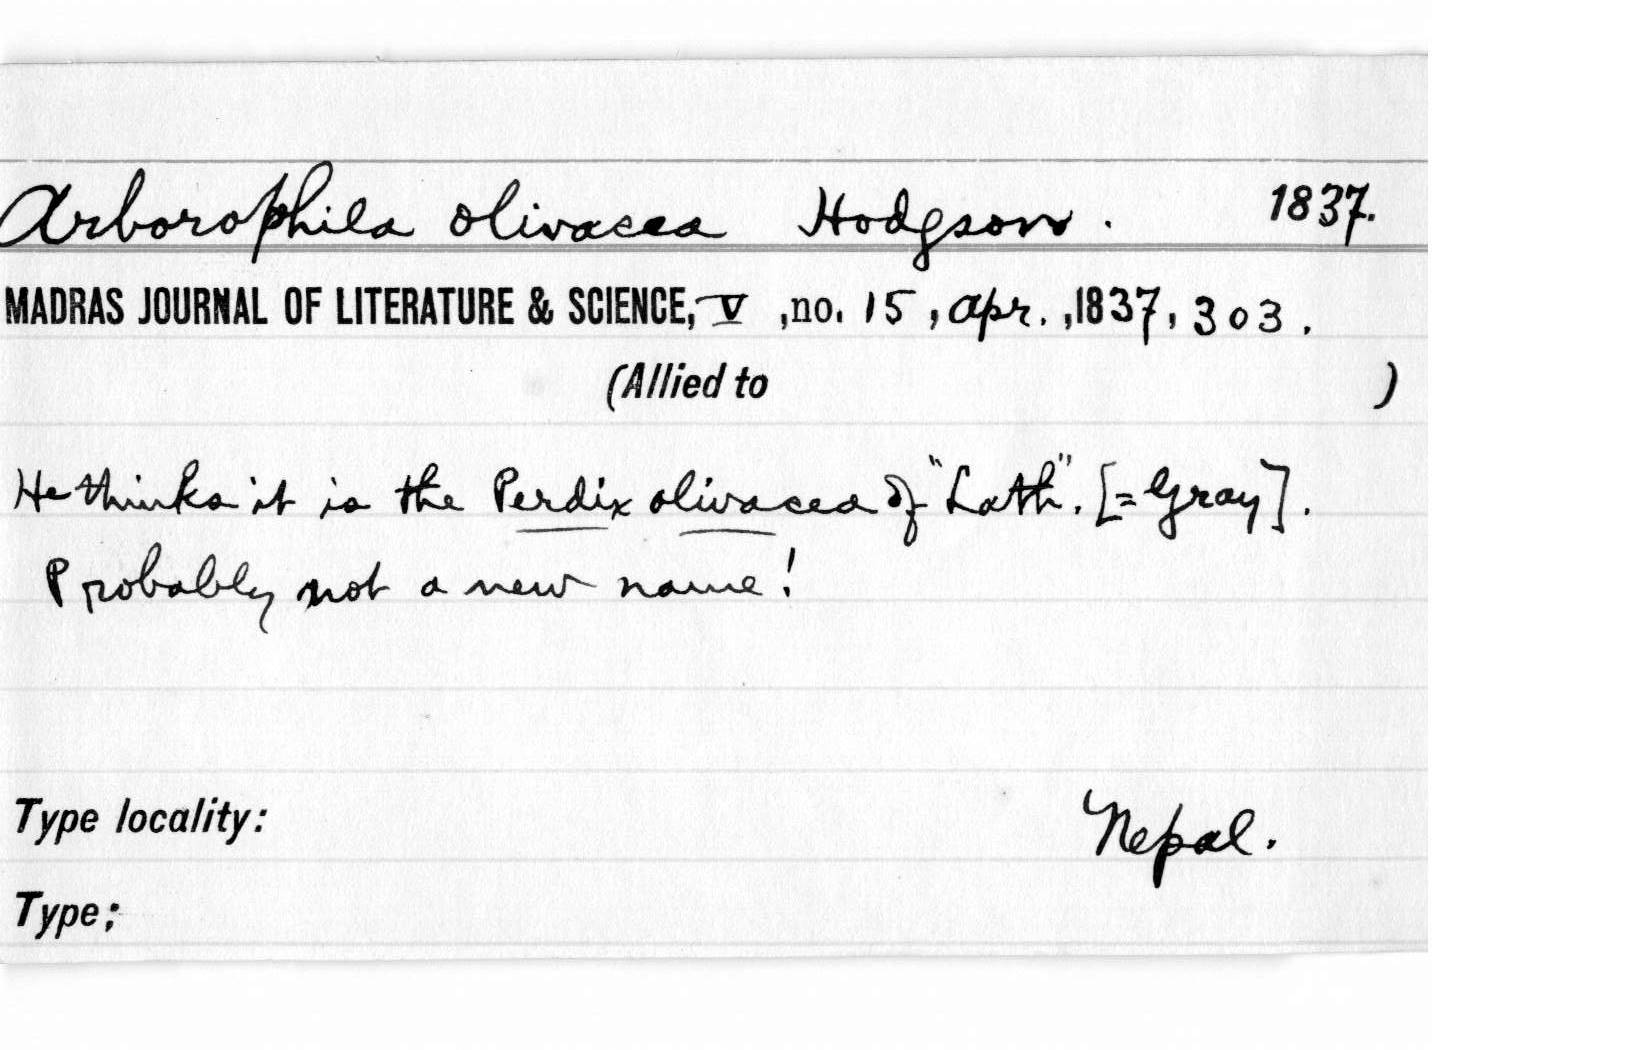 Arborophila olivacea Hodgson. 1837.
MADRAS JOURNAL OF LITERATURE & SCIENCE, V, no. 15, Apr., 1837, 303.
(Allied to )
He thinks it is the Perdix olivacea of "Lath". [=Gray].
Probably not a new name!
Type locality: Nepal.
Type: